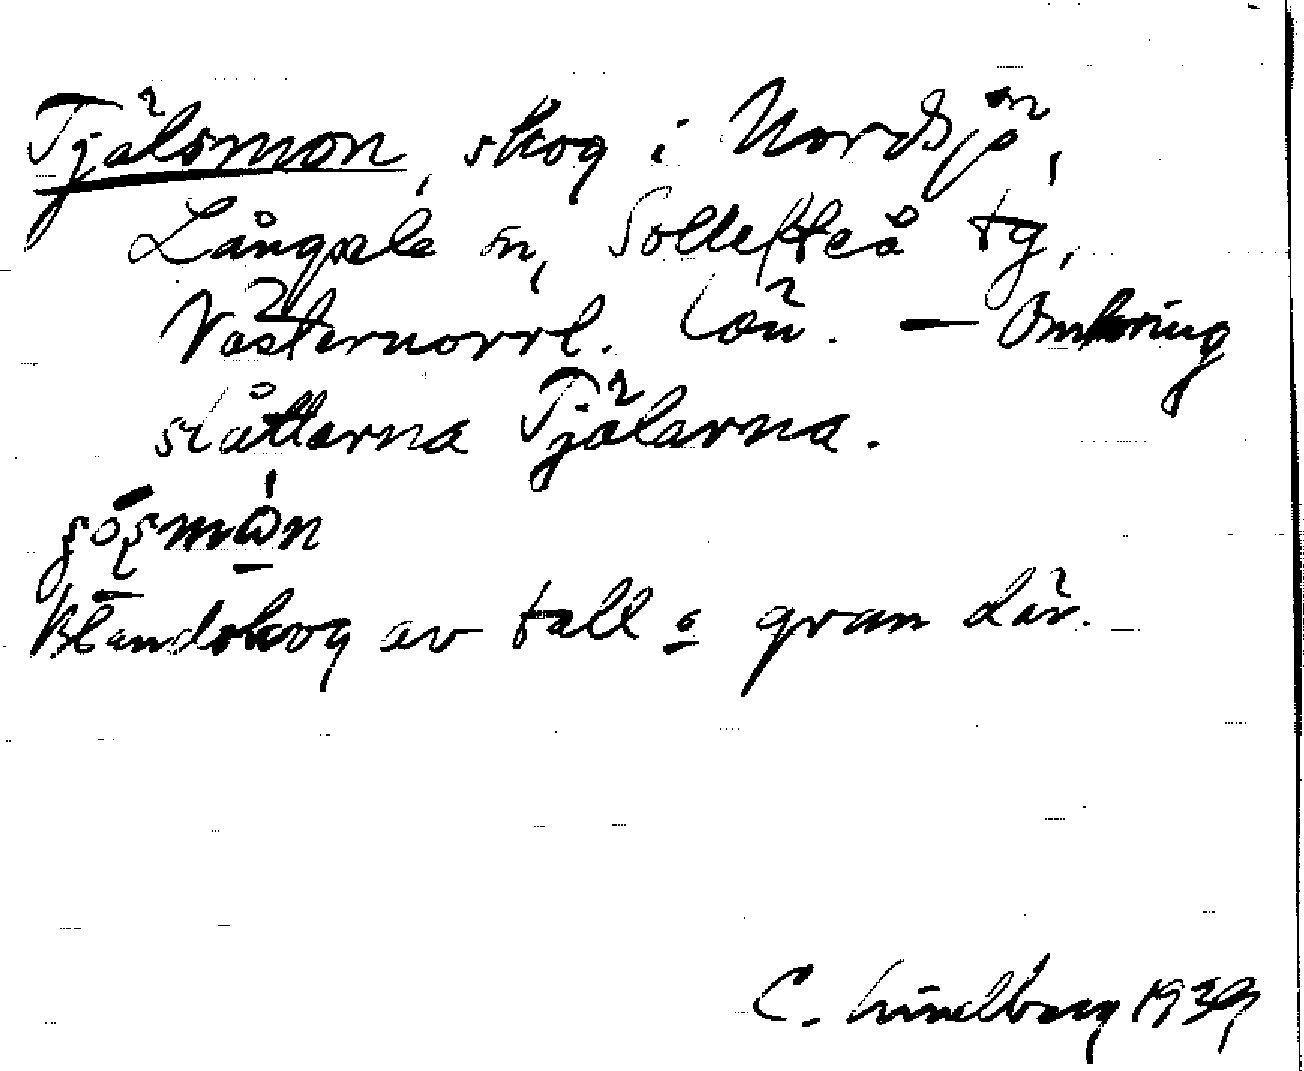 Tjälsmon, skog i Nordsjö,
Långsele sn, Sollefteå tg,
Västernorrl. län. — Omkring
slåttarna Tjälarna.
Blandskog av tall o gran där.
C. Lindberg 1939